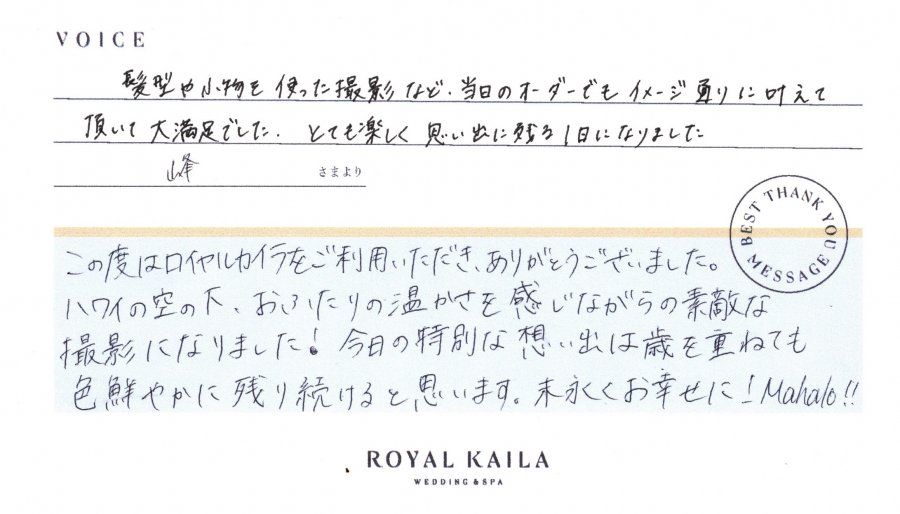 VOICE
髪型や小物を使った撮影など、当日のオーダーでもイメージ通りに叶えて
頂いて大満足でした。とても楽しく思い出に残る1日になりました
峰 さまより
BEST THANK YOU MESSAGE
この度はロイヤルカイラをご利用いただき、ありがとうございました。
ハワイの空の下、おふたりの温かさを感じながらの素敵な
撮影になりました！今日の特別な想い出は歳を重ねても
色鮮やかに残り続けると思います。末永くお幸せに！Mahalo!!
ROYAL KAILA
WEDDING & SPA